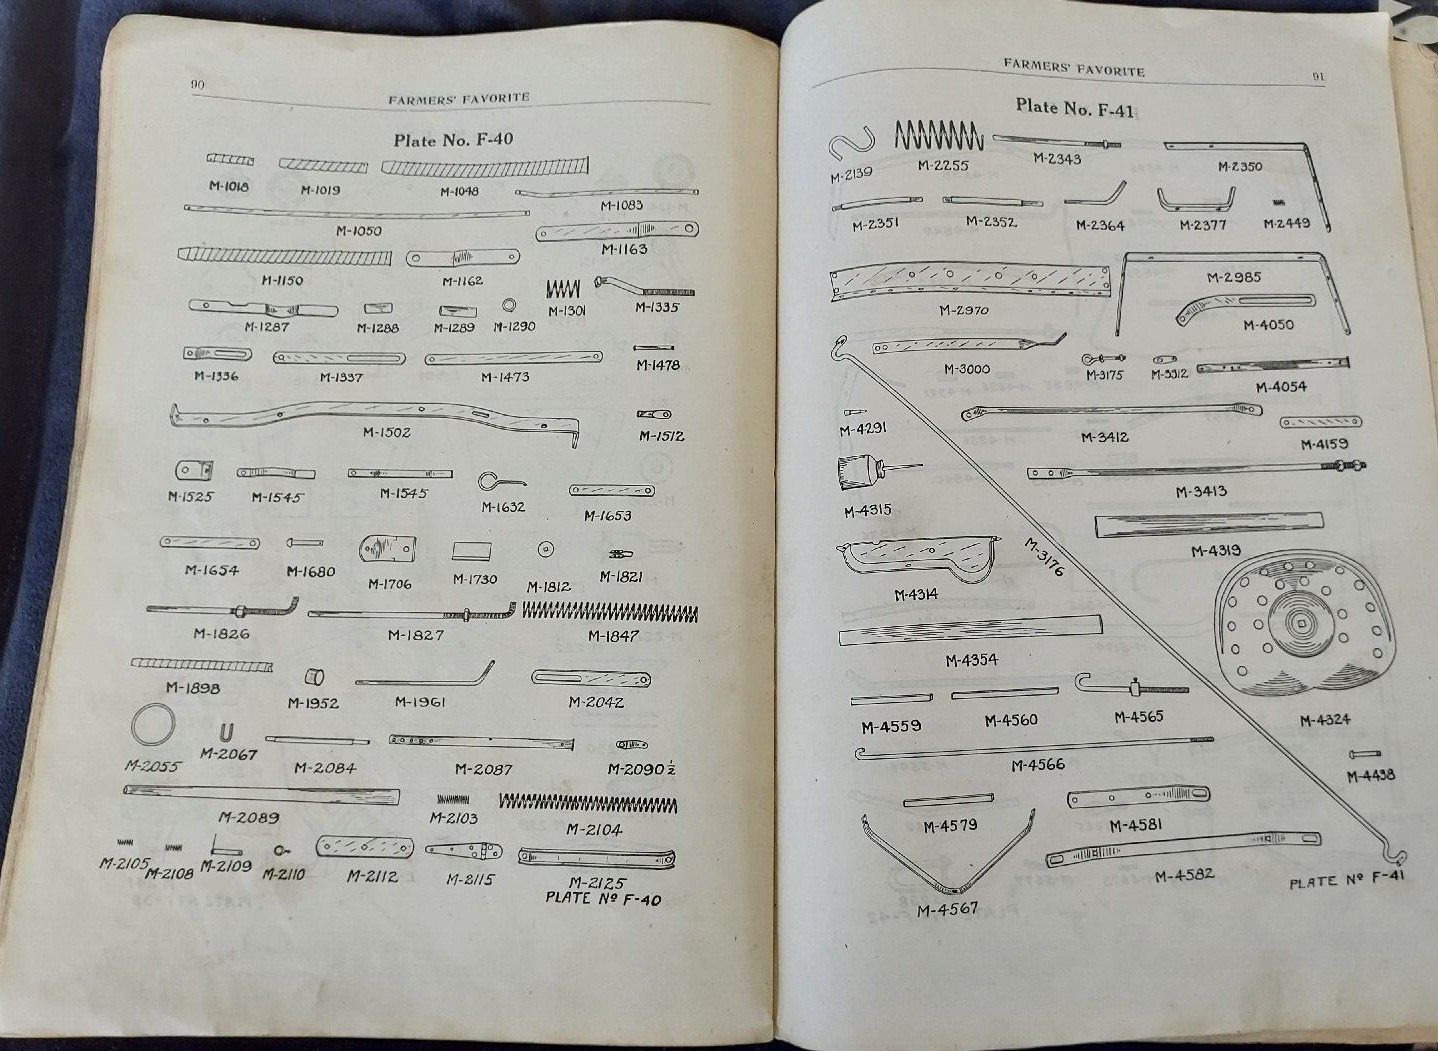 90
FARMERS' FAVORITE
Plate No. F-40
M-1018 M-1019 M-1048
M-1083
M-1050
M-1163
M-1150 M-1162
M-1301 M-1335
M-1287 M-1288 M-1289 M-1290
M-1336 M-1337 M-1473 M-1478
M-1502 M-1512
M-1525 M-1545 M-1545 M-1632 M-1653
M-1654 M-1680 M-1706 M-1730 M-1812 M-1821
M-1826 M-1827 M-1847
M-1898 M-1952 M-1961 M-2042
M-2055 M-2067 M-2084 M-2087 M-2090½
M-2089 M-2103 M-2104
M-2105 M-2108 M-2109 M-2110 M-2112 M-2115 M-2125
PLATE Nº F-40
FARMERS' FAVORITE 91
Plate No. F-41
M-2139 M-2255 M-2343 M-2350
M-2351 M-2352 M-2364 M-2377 M-2449
M-2970 M-2985
M-4050
M-3000 M-3175 M-3312 M-4054
M-4291 M-3412 M-4159
M-4315 M-3413
M-4314 M-3176 M-4319
M-4354
M-4559 M-4560 M-4565 M-4324
M-4566 M-4438
M-4579 M-4581
M-4567 M-4582 PLATE Nº F-41